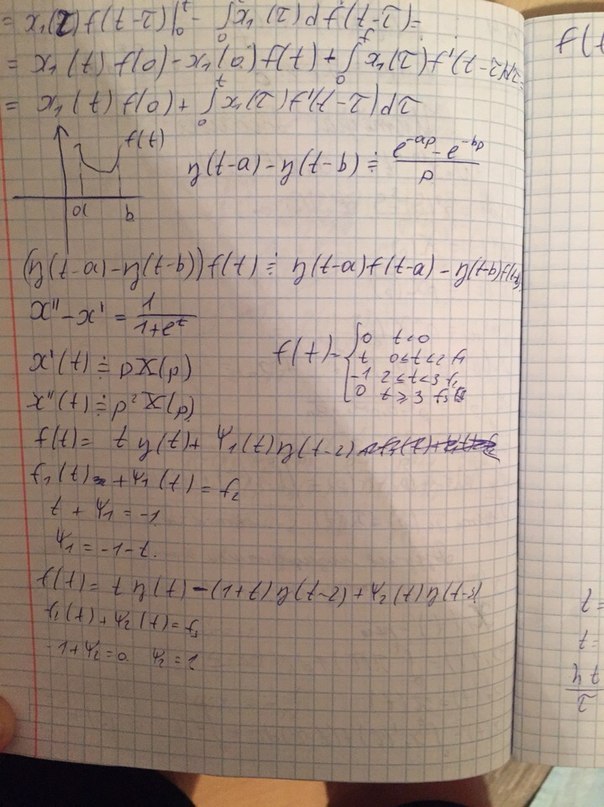 = x₁(τ)f(t-τ)|₀ᵗ - ∫₀ᵗ x₁(τ) d f(t-τ) =
= x₁(t) f(0) - x₁(0) f(t) + ∫₀ᵗ x₁(τ) f'(t-τ)dτ =
= x₁(t) f(0) + ∫₀ᵗ x₁(τ) f'(t-τ) dτ
f(t)
a b
η(t-a) - η(t-b) ≓ (e^{-ap} - e^{-bp})/p
(η(t-a) - η(t-b)) f(t) ≓ η(t-a) f(t-a) - η(t-b) f(t-b)
x'' - x' = 1/(1+e^t)
f(t) = { 0 t<0
t 0≤t<2 f₁
-1 2≤t<3 f₂
0 t≥3 f₃
x'(t) ≓ pX(p)
x''(t) ≓ p²X(p)
f(t) = t η(t) + Ψ₁(t) η(t-2)
f₁(t) + Ψ₁(t) = f₂
t + Ψ₁ = -1
Ψ₁ = -1-t.
f(t) = t η(t) - (1+t) η(t-2) + Ψ₂(t) η(t-3)
f₂(t) + Ψ₂(t) = f₃
-1 + Ψ₂ = 0 Ψ₂ = 1